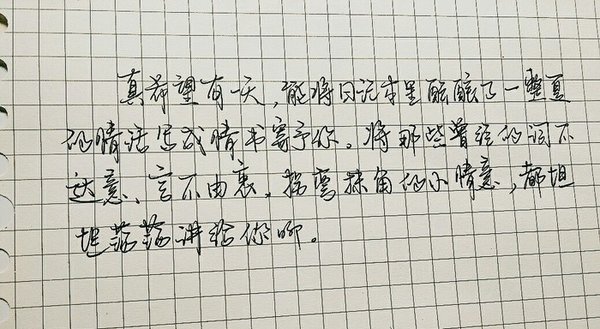 真希望有一天,能将日记本里酝酿了一整夏
的情话写成情书寄予你。将那些曾经的词不
达意、言不由衷、拐弯抹角的小情意,都坦
坦荡荡讲给你聊。